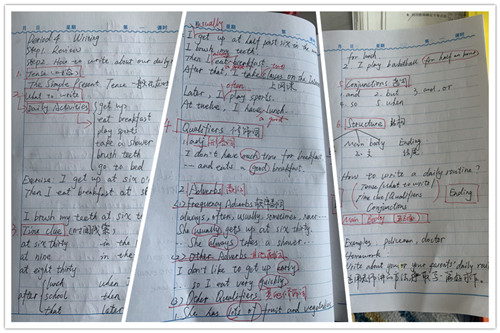 Period 4. Writing
Step1. Review
Step2. How to write about our daily
1. Tense
The Simple Present Tense 一般现在时
2. What to write
Daily Activities
get up
eat breakfast
play sports
take a shower
brush teeth
go to bed
Exercise I get up at six o'
Then I eat breakfast at s
I brush my teeth at six t
3. Time clue (时间线索)
at six thirty in the
at nine in the
at eight thirty
lunch when
after school then
that later
usually
I get up at half past six in the
I brush my teeth.
Then I eat breakfast
After that, I take classes on the
often 上网课
Later, I play sports.
At twelve, I have lunch.
a good
4. Qualifiers 修饰词
1) adj 形容词
I don't have much time for breakfast
and eat a good breakfast.
2) Adverbs 副词
1) Frequency Adverbs 频率副词
always, often, usually, sometimes,
She usually gets up at six thirty.
She always takes a shower
2) Other Adverbs 其他副词
I don't like to get up early
so I eat very quickly
3) Other Qualifiers 其他修饰词
She has lots of fruit and vegetables
for both
2. I play basketball for half an hour
5. Conjunctions 连词
1. and 2. but 3. and, or
4. so 5. when
6. Structure 结构
Main body Ending
How to write a daily routine?
Tense/What to write/
Time clue/Qualifiers
Conjunctions
Ending
Main Body
Examples, policeman, doctor
Homework
Write about your or your parents' daily